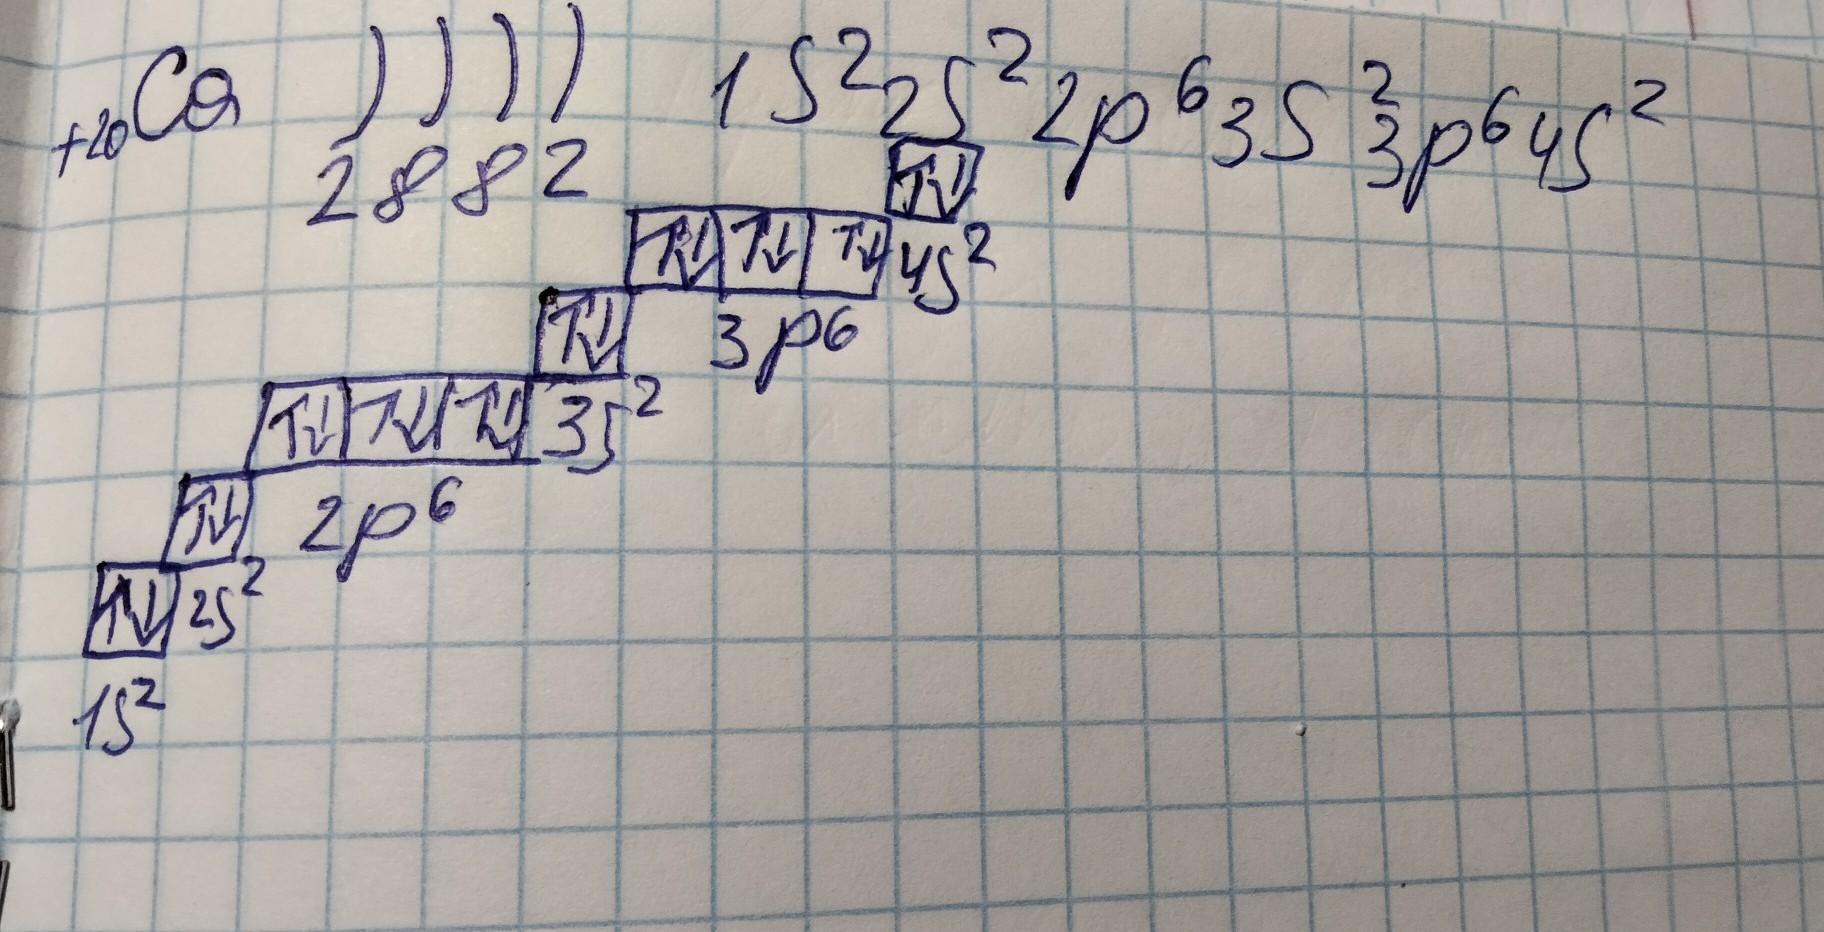 +20Ca ) ) ) ) 1S²2S²2p⁶3S²3p⁶4S²
2 8 8 2
↑↓
↑↓ ↑↓ ↑↓ 4S²
↑↓ 3p6
↑↓ ↑↓ ↑↓ 3S²
↑↓ 2p⁶
↑↓ 2S²
1S²